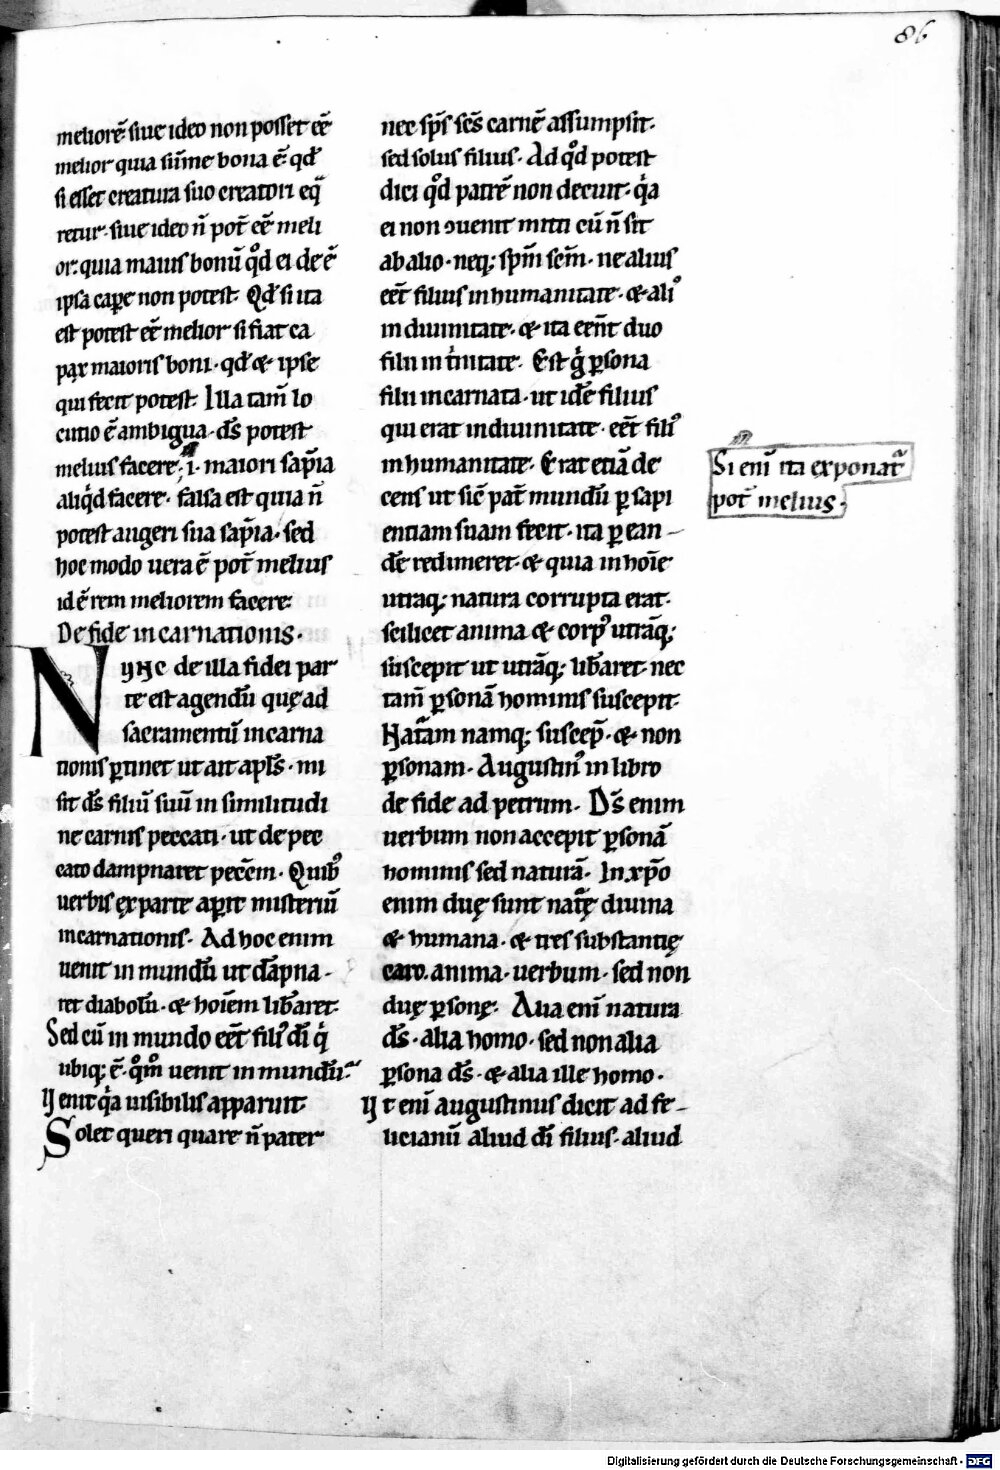 86
meliorē siue ideo non posset eē
melior quia sūme bona ē. qđ
si esset creatura suo creatori eq̄
retur. siue ideo n̄ pot̄ eē meli
or. quia maius bonū qͦd ei deē
ipsa capere non potest. Qđ si ita
est potest eē melior si fiat ca
pax maioris boni. qđ & ipse
qui fecit potest. Illa tam̄ lo
cutio ē ambigua. d̄s potest
melius facere. .i. maiori sap̄ia
aliqͥd facere. falsa est quia n̄
potest augeri sua sap̄ia. sed
hoc modo uera ē pot̄ melius
id ē rem meliorem facere.
De fide incarnationis.
NVNC de illa fidei par
te est agendū quę ad
sacramentū incarna
tionis ꝑtinet ut ait apl̄s. mi
sit d̄s filiū suū in similitudi
ne carnis peccati. ut de pec
cato dampnaret pecc̄m. Quibꝰ
uerbis ex parte aꝑit misteriū
incarnationis. Ad hoc enim
uenit in mundū ut dāpna-
ret diabolū. & hoīem lib̄aret.
Sed cū in mundo eēt filiꝰ dī qͥ
ubiqꝫ ē. qͦmͦ uenit in mundū.
Venit qͥa uisibilis apparuit.
Solet queri quare n̄ pater
nec sp̄s sc̄s carnē assumpsit.
sed solus filius. Ad qͦd potest
dici qͦd patrē non decuit. qͥa
ei non ꝯuenit mitti cū n̄ sit
ab alio. neqꝫ sp̄m sc̄m. ne alius
eēt filius in humanitate. & aliꝰ
in diuinitate. & ita eēnt duo
filii in tͥnitate. Est gͥ ꝑsona
filii incarnata. ut idē filius
qui erat in diuinitate. eēt filiꝰ
in humanitate. Erat etiā de
cens ut sic̄ pat̄ mundū ꝑ sapi
entiam suam fecit. ita ꝑ ean-
dē redimeret. & quia in hoīe
utraqꝫ natura corrupta erat.
scilicet anima & corpꝰ utrāqꝫ
suscepit ut utrāqꝫ lib̄aret nec
tam̄ ꝑsonā hominis suscepit.
Nat̄am namqꝫ suscep̄. & non
ꝑsonam. Augustinꝰ in libro
de fide ad petrum. D̄s enim
uerbum non accepit ꝑsonā
hominis sed naturā. In xp̄o
enim duę sunt nat̄ę diuina
& humana. & tres substantię
caro. anima. uerbum. sed non
duę ꝑsonę. Alia eni̅ natura
d̄s. alia homo. sed non alia
ꝑsona d̄s. & alia ille homo.
Vt eni̅ augustinus dicit ad fe-
licianū aliud dī filius. aliud
Si eni̅ ita exponat̄
pot̄ melius.
Digitalisierung gefördert durch die Deutsche Forschungsgemeinschaft - DFG